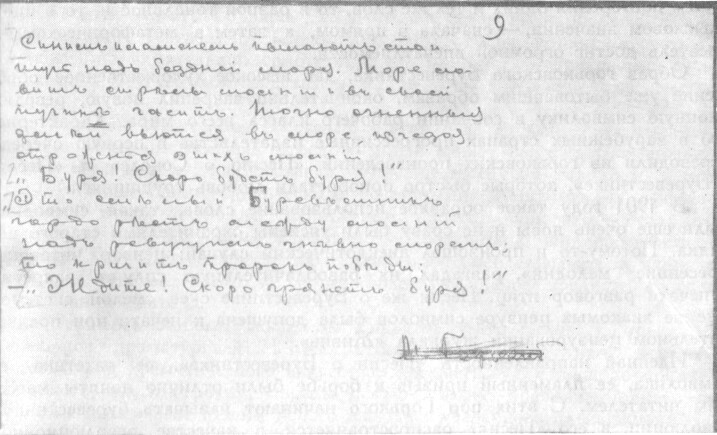 9
Синимъ пламенемъ пылаютъ стаи
тучъ надъ бездной моря. Море ло-
витъ стрѣлы молній и въ своей
пучинѣ гаситъ. Точно огненныя
вьются въ море исчезая
отраженья этихъ молній.
— „Буря! Скоро будетъ буря!"
Это смѣлый Буревѣстникъ
гордо рѣетъ между молній
надъ ревущимъ гнѣвно моремъ;
то кричитъ пророкъ побѣды:
— „Ждите! Скоро грянетъ буря!"